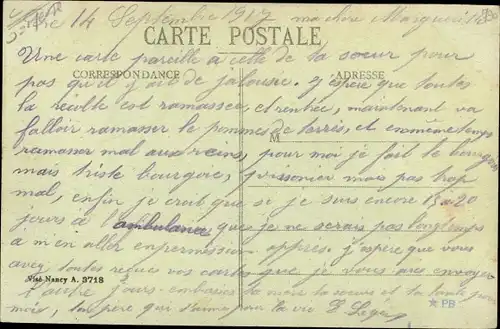 14 Septembre 1917 ma chère Marguerite
CARTE POSTALE
Une carte pareille à celle de ta soeur pour
CORRESPONDANCE
ADRESSE
pas qu'il y ait de jalousie. j'espère que toutes
la recolte est ramasser et rentrée, maintenant va
falloir ramasser le pommes de terres, et en même temps
M
ramasser mal aux reins, pour moi je fait le bourgeois
mais triste bourgois, puissonier mais pas trop
mal, enfin je croit que si je suis encore 15 a 20
jours à l'ambulance que je ne serais pas longtemps
a m'en aller en permission après. j'espère que vous
avez toutes reçue vos cartes que je vous ais envoyer
Visé Nancy A. 3718
l'autre jours. embrasse ta mère ta soeur et ta tante pour
mois, ton père qui t'aime pour la vie
PB